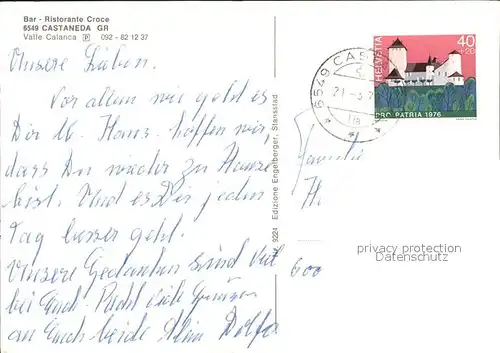 Bar - Ristorante Croce
6549 CASTANEDA GR
Valle Calanca P 092 - 82 12 37
Unsere Lieben.
Vor allem wie geht es
Dir lb. Hans. hoffen wir,
dass Du wieder zu Hause
bist. Und es Dir jeden
Tag besser geht.
Unsere Gedanken sind viel
bei Euch. Recht viele Grüsse
an Euch beide
9224 Edizione Engelberger, Stansstad
6549 CAS
21 -5.
HELVETIA
40
+20
PRO PATRIA 1976
Familie
H.
600
privacy protection
Datenschutz